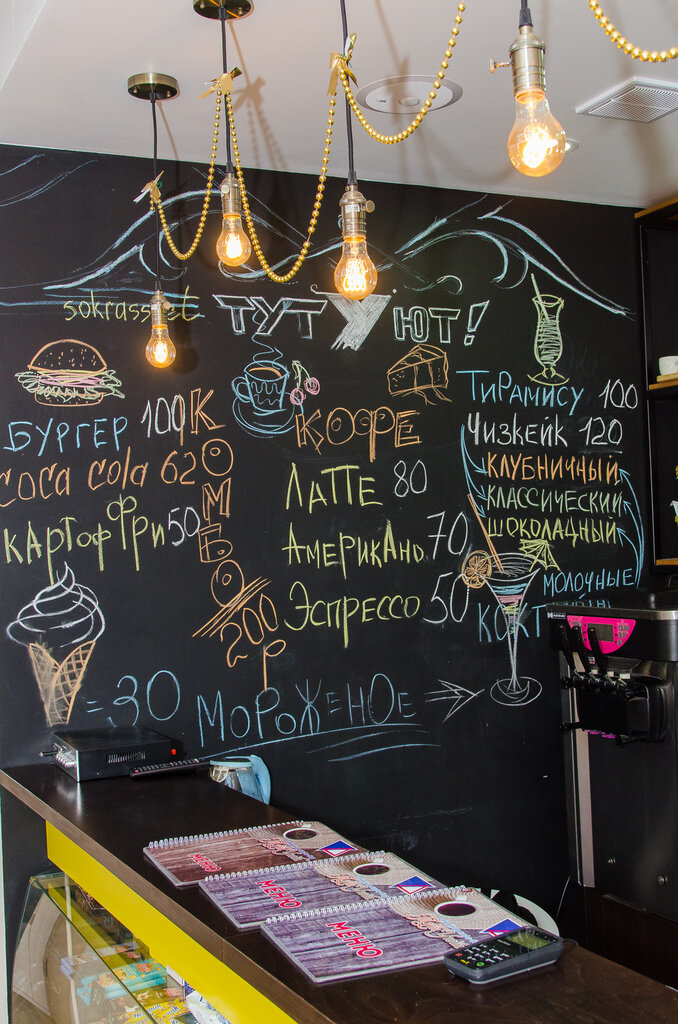 sokrasset
ТУТ УЮТ!
БУРГЕР 100
COCA COLA 620
КАРТОФ ФРИ 50
КОМБО
200 р
КОФЕ
ЛАТТЕ 80
АМЕРИКАНО 70
ЭСПРЕССО 50
ТИРАМИСУ 100
ЧИЗКЕЙК 120
КЛУБНИЧНЫЙ
КЛАССИЧЕСКИЙ
ШОКОЛАДНЫЙ
МОЛОЧНЫЕ
= 30
МОРОЖЕНОЕ
МЕНЮ
МЕНЮ
МЕНЮ